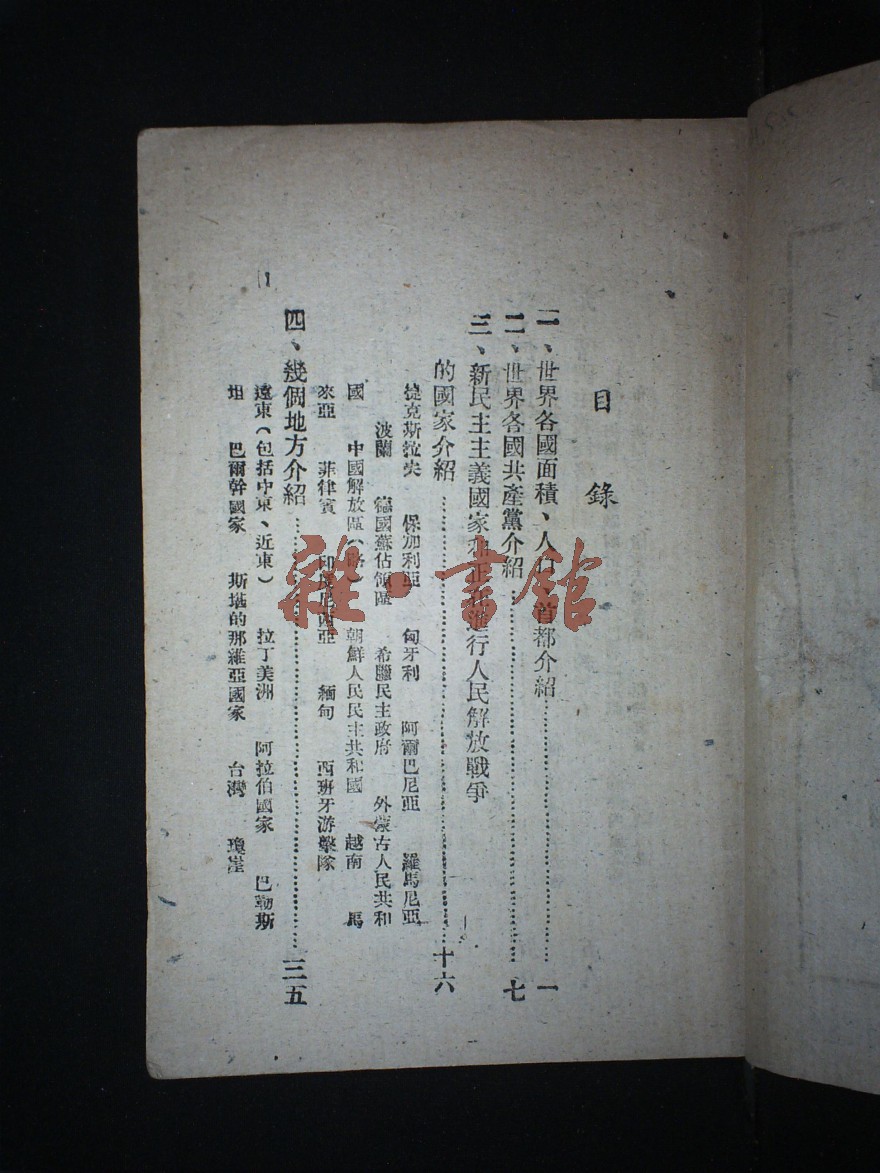 目錄
一、世界各國面積、人口、首都介紹……一
二、世界各國共產黨介紹……七
三、新民主主義國家和正在進行人民解放戰爭
的國家介紹……十六
捷克斯拉夫 保加利亞 匈牙利 阿爾巴尼亞 羅馬尼亞
波蘭 德國蘇佔領區 希臘民主政府 外蒙古人民共和
國 中國解放區(略) 朝鮮人民民主共和國 越南 馬
來亞 菲律賓 印度尼西亞 緬甸 西班牙游擊隊
四、幾個地方介紹……三五
遠東(包括中東、近東) 拉丁美洲 阿拉伯國家 巴勒斯
坦 巴爾幹國家 斯堪的那維亞國家 台灣 瓊崖
雜·書館